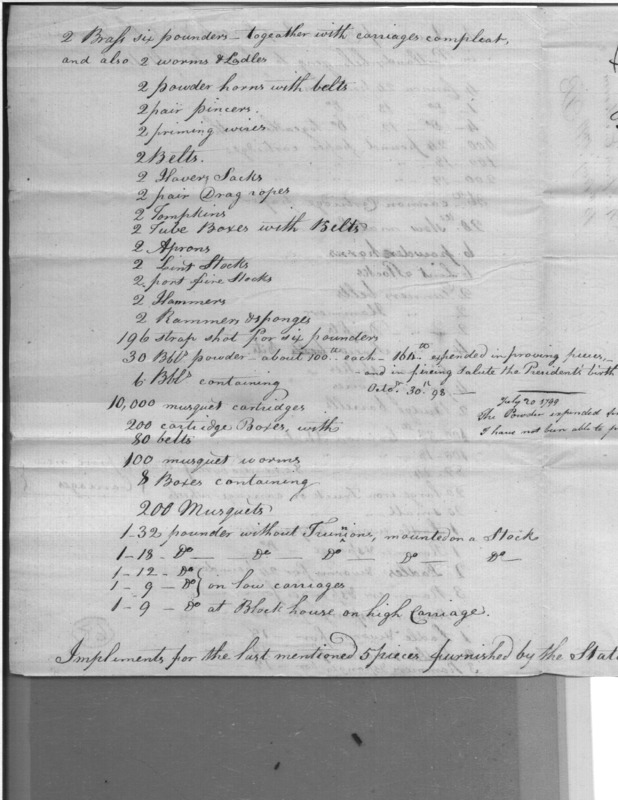 2 Brass six pounders - togeather with carriages compleat,
and also 2 worms & Ladles
2 powder horns with belts
2 pair pincers.
2 priming wires
2 Belts.
2 Havers Sacks
2 pair Drag ropes
2 Tompkins
2 Tube Boxes with Belts
2 Aprons
2 Lint Stocks
2 port fire Stocks
2 Hammers
2 Rammers & sponges
196 strap shot for six pounders
30 Bbls powder - about 100 lb each - 164 lb expended in proving pieces,
- and in firing salute the Presidents birth
6 Bbls containing
Octor. 30th 98 -
10,000 musquet cartridges
July 20 1799
The Powder expended
200 cartridge Boxes, with
I have not been able to
80 belts
100 musquet worms
8 Boxes containing
200 Musquets
1 - 32 pounder without Trunnions, mounted on a Stock
1 - 18 - Do - Do - Do - Do - Do
1 - 12 - Do
1 - 9 - Do } on low carriages
1 - 9 - Do at Block house on high Carriage.
Impliments for the last mentioned 5 pieces furnished by the Stat